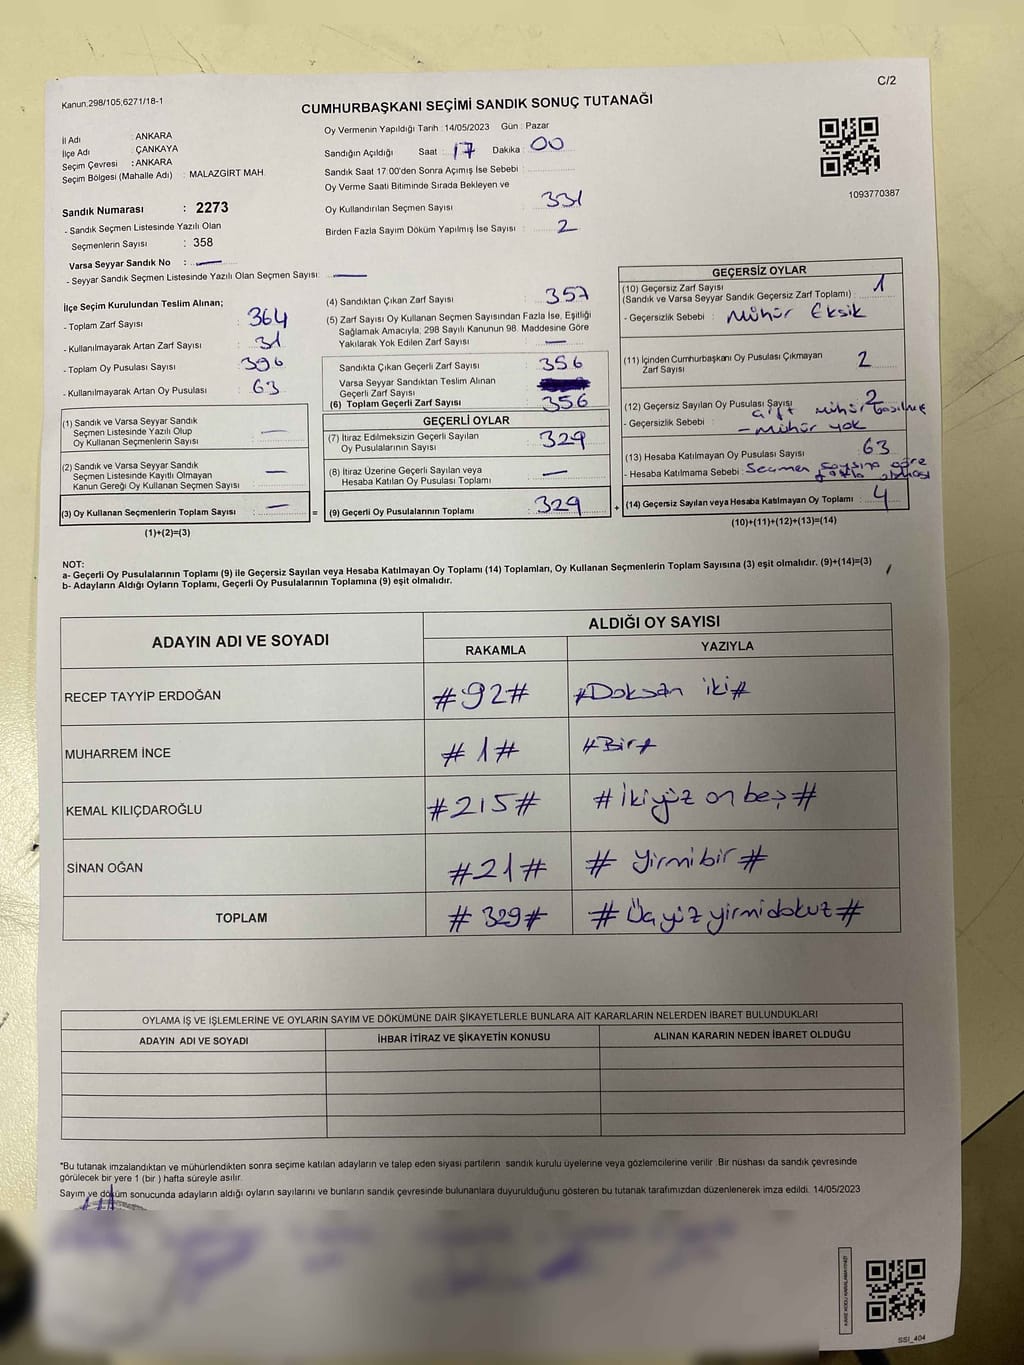 C/2
Kanun;298/105;6271/18-1
CUMHURBAŞKANI SEÇİMİ SANDIK SONUÇ TUTANAĞI
İl Adı : ANKARA
İlçe Adı : ÇANKAYA
Seçim Çevresi : ANKARA
Seçim Bölgesi (Mahalle Adı) : MALAZGİRT MAH.
Oy Vermenin Yapıldığı Tarih : 14/05/2023 Gün : Pazar
Sandığın Açıldığı Saat : 17 Dakika : 00
Sandık Saat 17:00'den Sonra Açımış İse Sebebi :
Oy Verme Saati Bitiminde Sırada Bekleyen ve
Oy Kullandırılan Seçmen Sayısı : 331
Birden Fazla Sayım Döküm Yapılmış İse Sayısı : 2
1093770387
Sandık Numarası : 2273
- Sandık Seçmen Listesinde Yazılı Olan
Seçmenlerin Sayısı : 358
Varsa Seyyar Sandık No : —
- Seyyar Sandık Seçmen Listesinde Yazılı Olan Seçmen Sayısı: —
İlçe Seçim Kurulundan Teslim Alınan;
- Toplam Zarf Sayısı : 364
- Kullanılmayarak Artan Zarf Sayısı : 31
- Toplam Oy Pusulası Sayısı : 396
- Kullanılmayarak Artan Oy Pusulası : 63
(1) Sandık ve Varsa Seyyar Sandık
Seçmen Listesinde Yazılı Olup
Oy Kullanan Seçmenlerin Sayısı : —
(2) Sandık ve Varsa Seyyar Sandık
Seçmen Listesinde Kayıtlı Olmayan
Kanun Gereği Oy Kullanan Seçmen Sayısı : —
(3) Oy Kullanan Seçmenlerin Toplam Sayısı : —
(1)+(2)=(3)
(4) Sandıktan Çıkan Zarf Sayısı : 357
(5) Zarf Sayısı Oy Kullanan Seçmen Sayısından Fazla İse, Eşitliği
Sağlamak Amacıyla, 298 Sayılı Kanunun 98. Maddesine Göre
Yakılarak Yok Edilen Zarf Sayısı : —
Sandıkta Çıkan Geçerli Zarf Sayısı : 356
Varsa Seyyar Sandıktan Teslim Alınan
Geçerli Zarf Sayısı :
(6) Toplam Geçerli Zarf Sayısı : 356
GEÇERLİ OYLAR
(7) İtiraz Edilmeksizin Geçerli Sayılan
Oy Pusulalarının Sayısı : 329
(8) İtiraz Üzerine Geçerli Sayılan veya
Hesaba Katılan Oy Pusulası Toplamı : —
= (9) Geçerli Oy Pusulalarının Toplamı : 329 +
GEÇERSİZ OYLAR
(10) Geçersiz Zarf Sayısı
(Sandık ve Varsa Seyyar Sandık Geçersiz Zarf Toplamı) : 1
- Geçersizlik Sebebi : Mühür Eksik
(11) İçinden Cumhurbaşkanı Oy Pusulası Çıkmayan
Zarf Sayısı : 2
(12) Geçersiz Sayılan Oy Pusulası Sayısı : 2
çift mühür basılmış
- Geçersizlik Sebebi : - mühür yok
(13) Hesaba Katılmayan Oy Pusulası Sayısı : 63
- Hesaba Katılmama Sebebi : Seçmen sayısına göre
fazla olması
(14) Geçersiz Sayılan veya Hesaba Katılmayan Oy Toplamı : 4
(10)+(11)+(12)+(13)=(14)
NOT:
a- Geçerli Oy Pusulalarının Toplamı (9) ile Geçersiz Sayılan veya Hesaba Katılmayan Oy Toplamı (14) Toplamları, Oy Kullanan Seçmenlerin Toplam Sayısına (3) eşit olmalıdır. (9)+(14)=(3)
b- Adayların Aldığı Oyların Toplamı, Geçerli Oy Pusulalarının Toplamına (9) eşit olmalıdır.
ADAYIN ADI VE SOYADI
ALDIĞI OY SAYISI
RAKAMLA YAZIYLA
RECEP TAYYİP ERDOĞAN #92# #Doksan iki#
MUHARREM İNCE #1# #Bir#
KEMAL KILIÇDAROĞLU #215# #ikiyüz on beş#
SİNAN OĞAN #21# #yirmibir#
TOPLAM #329# #Üçyüzyirmidokuz#
OYLAMA İŞ VE İŞLEMLERİNE VE OYLARIN SAYIM VE DÖKÜMÜNE DAİR ŞİKAYETLERLE BUNLARA AİT KARARLARIN NELERDEN İBARET BULUNDUKLARI
ADAYIN ADI VE SOYADI İHBAR İTİRAZ VE ŞİKAYETİN KONUSU ALINAN KARARIN NEDEN İBARET OLDUĞU
*Bu tutanak imzalandıktan ve mühürlendikten sonra seçime katılan adayların ve talep eden siyasi partilerin sandık kurulu üyelerine veya gözlemcilerine verilir. Bir nüshası da sandık çevresinde
görülecek bir yere 1 (bir ) hafta süreyle asılır.
Sayım ve döküm sonucunda adayların aldığı oyların sayılarını ve bunların sandık çevresinde bulunanlara duyurulduğunu gösteren bu tutanak tarafımızdan düzenlenerek imza edildi. 14/05/2023
SSI_404